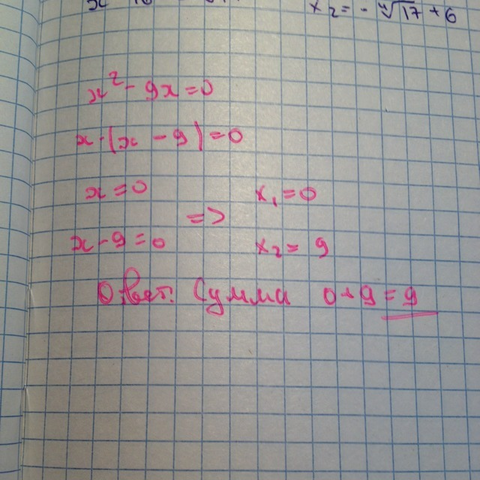 x₂ = -∜17 + 6
x² - 9x = 0
x·(x - 9) = 0
x = 0
x₁ = 0
=>
x - 9 = 0
x₂ = 9
Ответ: Сумма 0 + 9 = 9